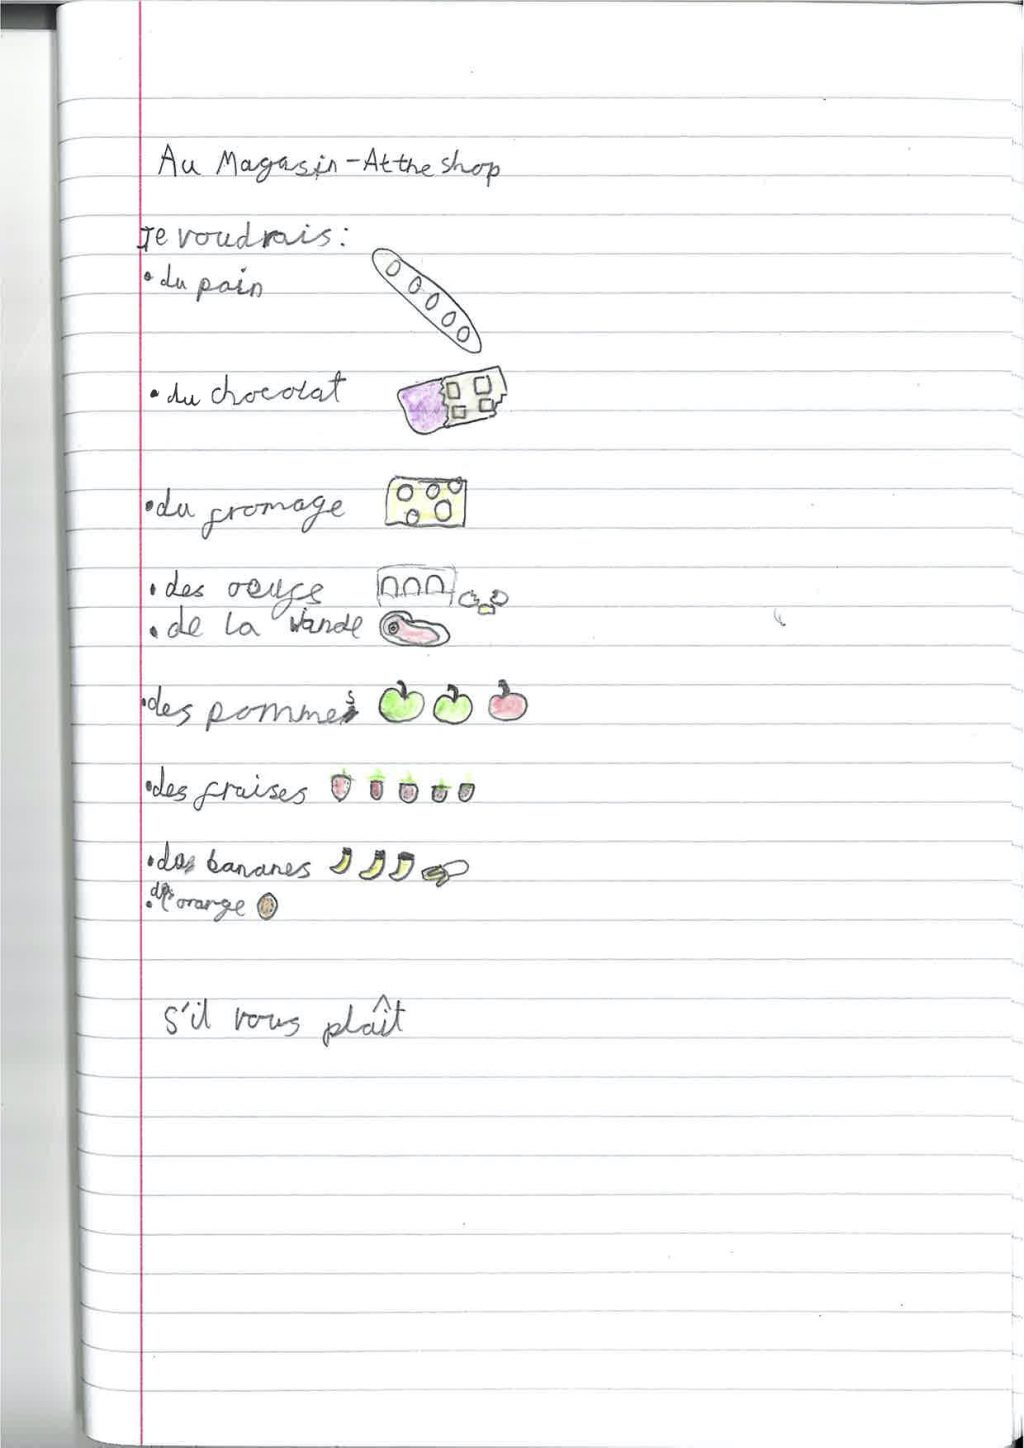 Au Magasin - At the shop
Je voudrais:
• du pain
• du chocolat
• du fromage
• des oeufs
• de la viande
• des pommes
• des fraises
• des bananes
• de l'orange
S'il vous plaît